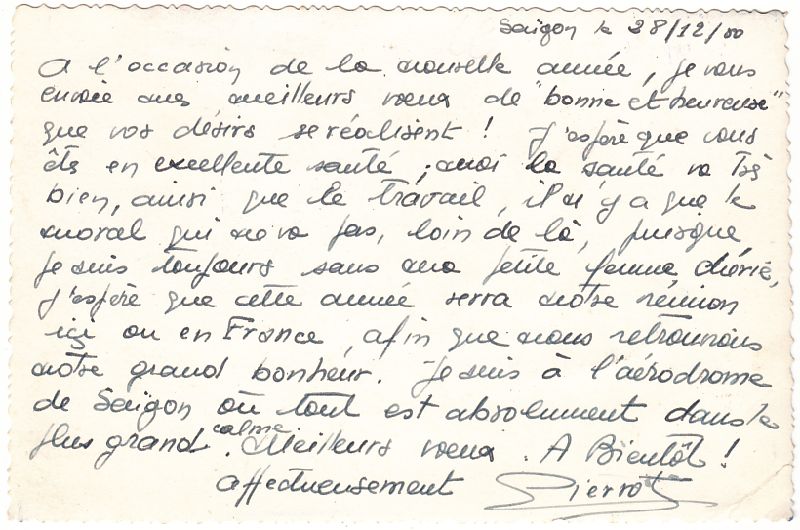 Saïgon le 28/12/50
A l'occasion de la nouvelle année, je vous
envoie mes meilleurs vœux de "bonne et heureuse"
que vos désirs se réalisent ! J'espère que vous
êtes en excellente santé ; moi la santé va très
bien, ainsi que le travail, il n'y a que le
moral qui ne va pas, loin de là, puisque
je suis toujours sans ma petite femme chérie,
j'espère que cette année serra notre réunion
içi ou en France, afin que nous retrouvions
notre grand bonheur. Je suis à l'aérodrome
de Saïgon où tout est absolument dans le
plus grand calme. Meilleurs vœux. A Bientôt !
affectueusement Pierrot